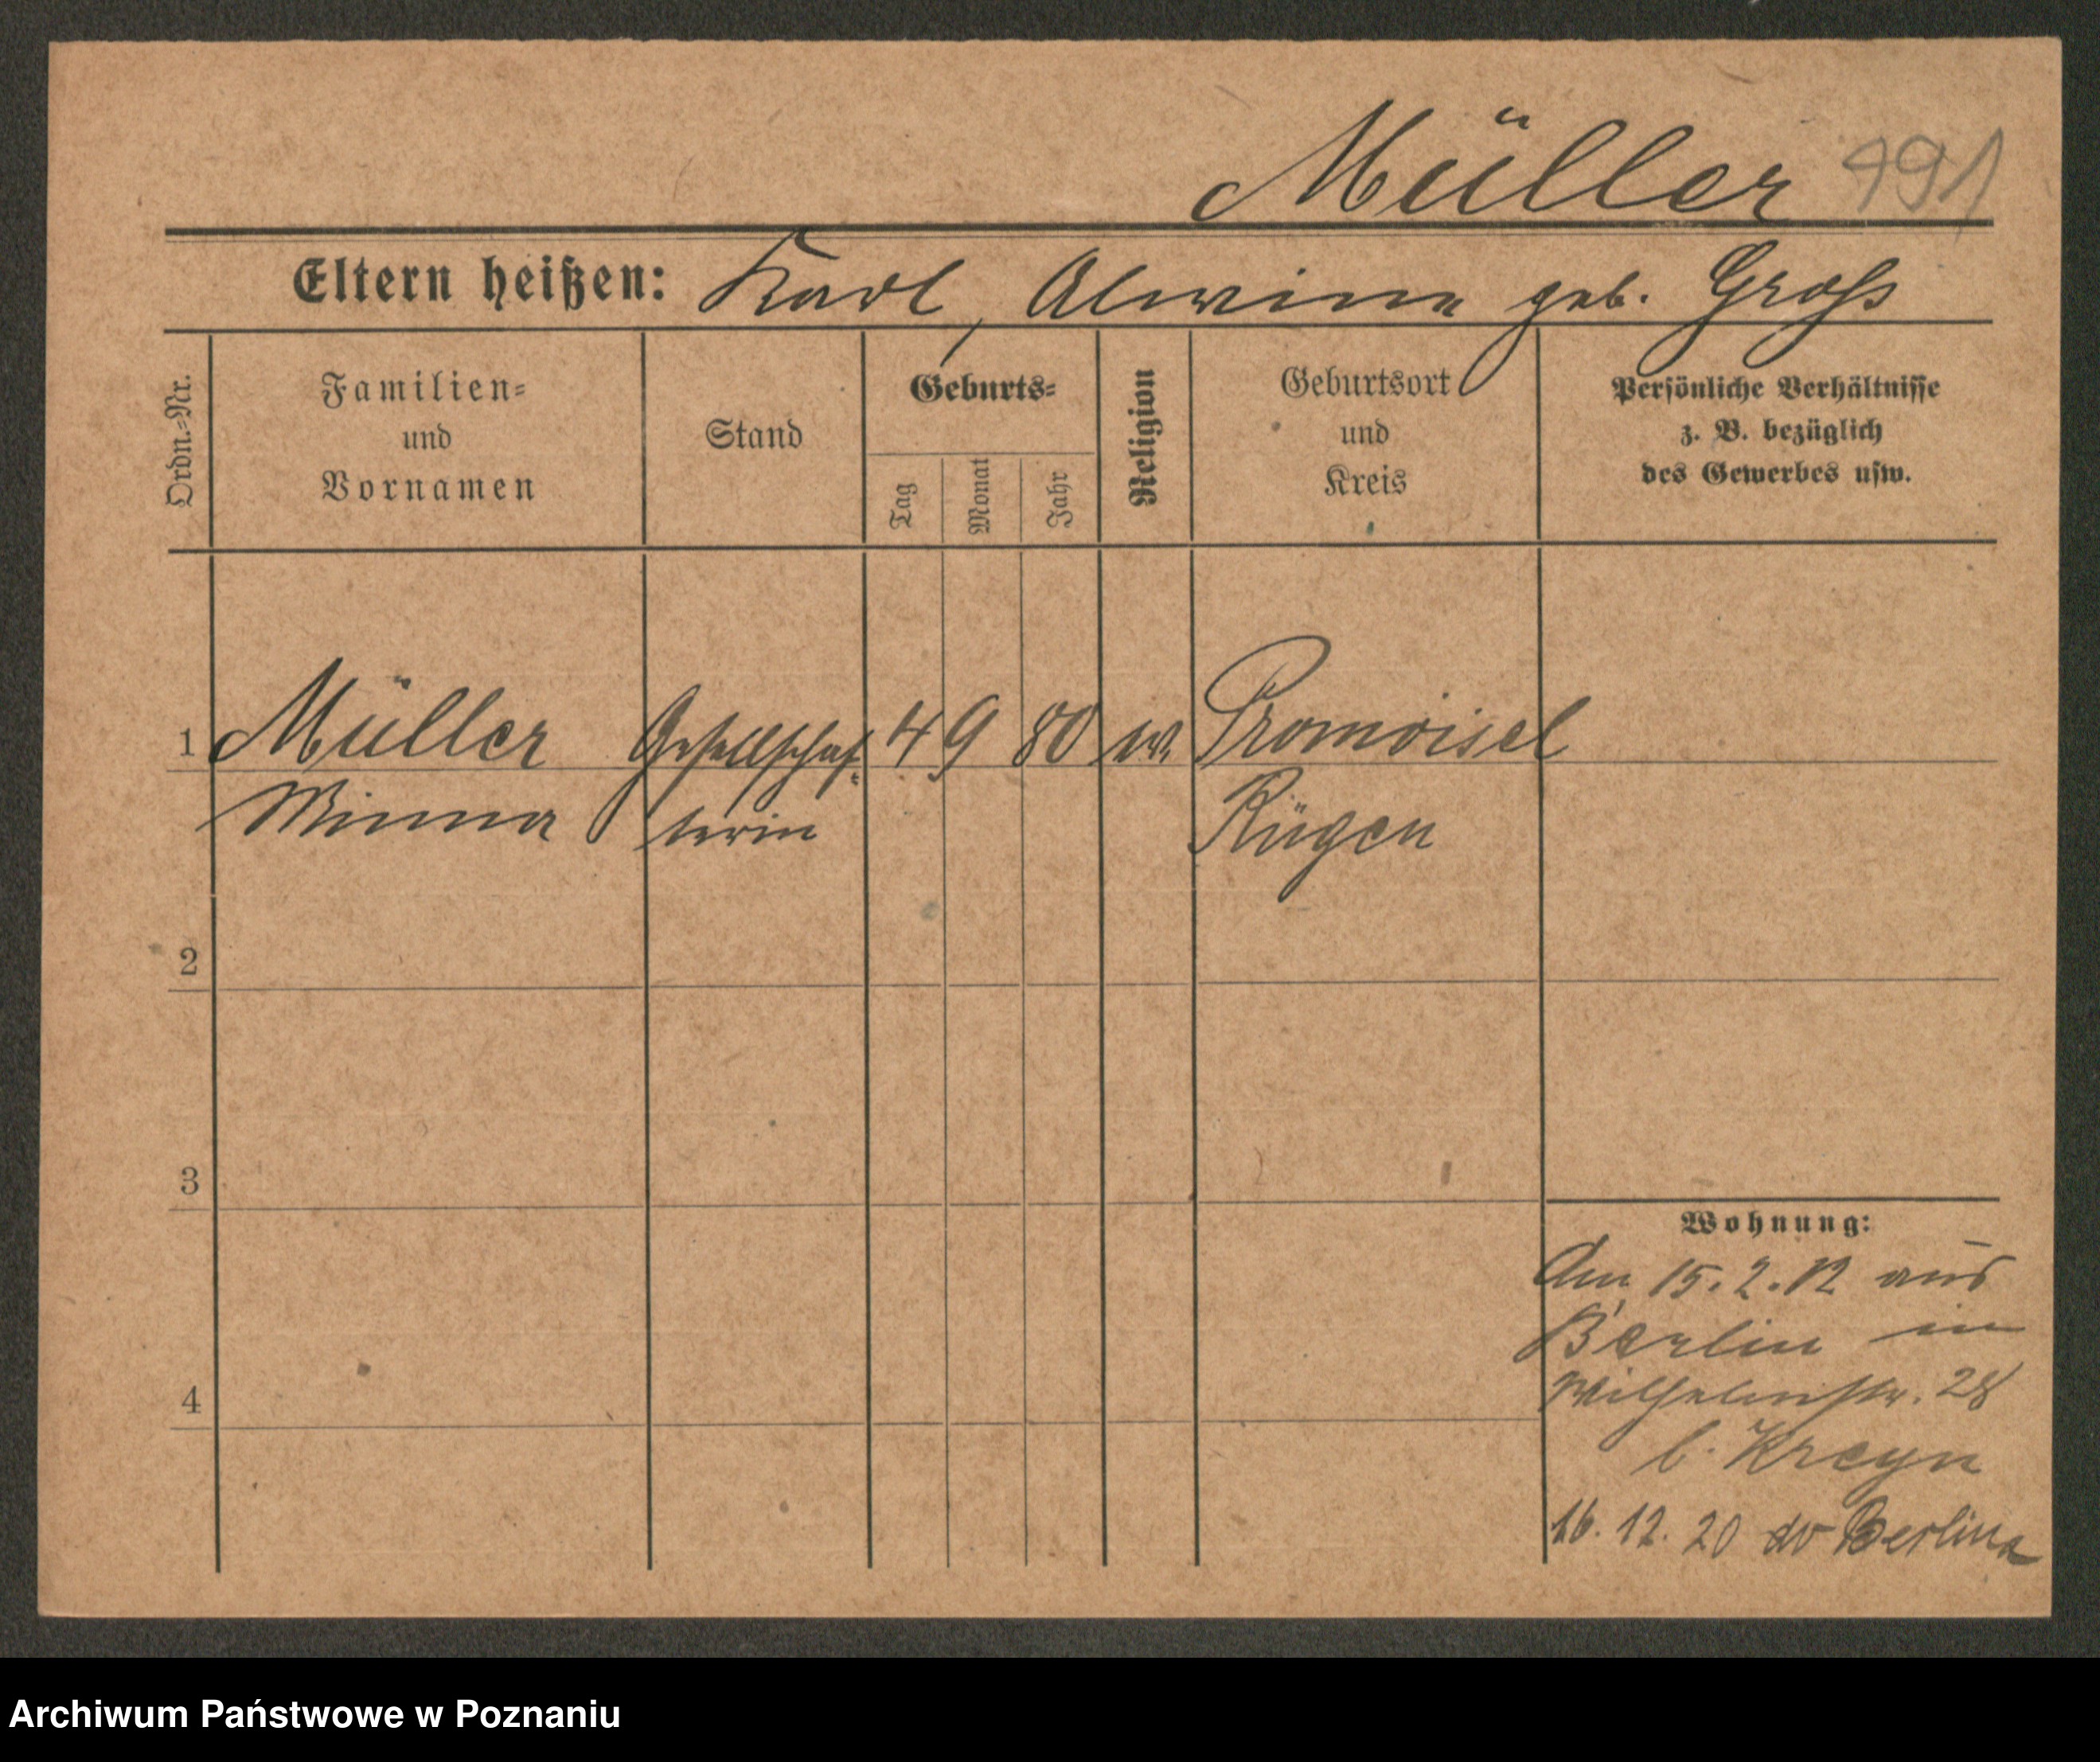 Müller 191
Eltern heißen: Karl, Alwine geb. Groß
Ordn.=Nr.
Familien=
und
Vornamen
Stand
Geburts=
Tag
Monat
Jahr
Religion
Geburtsort
und
Kreis
Persönliche Verhältnisse
z. B. bezüglich
des Gewerbes usw.
1 Müller Gesellschaf= 4 9 80 ev. Promoisel
Minna terin Rügen
2
3
Wohnung:
Am 15.2.12 aus
Berlin in
4 Wilhelmstr. 28
b. Kreyn
16. 12. 20 do Berlina
Archiwum Państwowe w Poznaniu